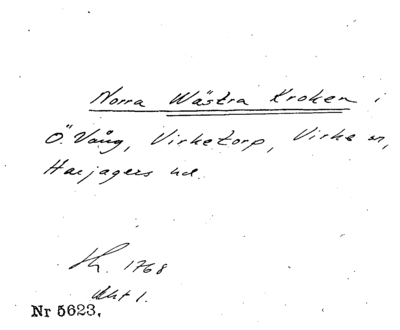 Norra Wästra Kroken i
Ö. Vång, Virketorp, Virke sn,
Harjagers hd.
Sk. 1768
Akt 1.
Nr 5623.